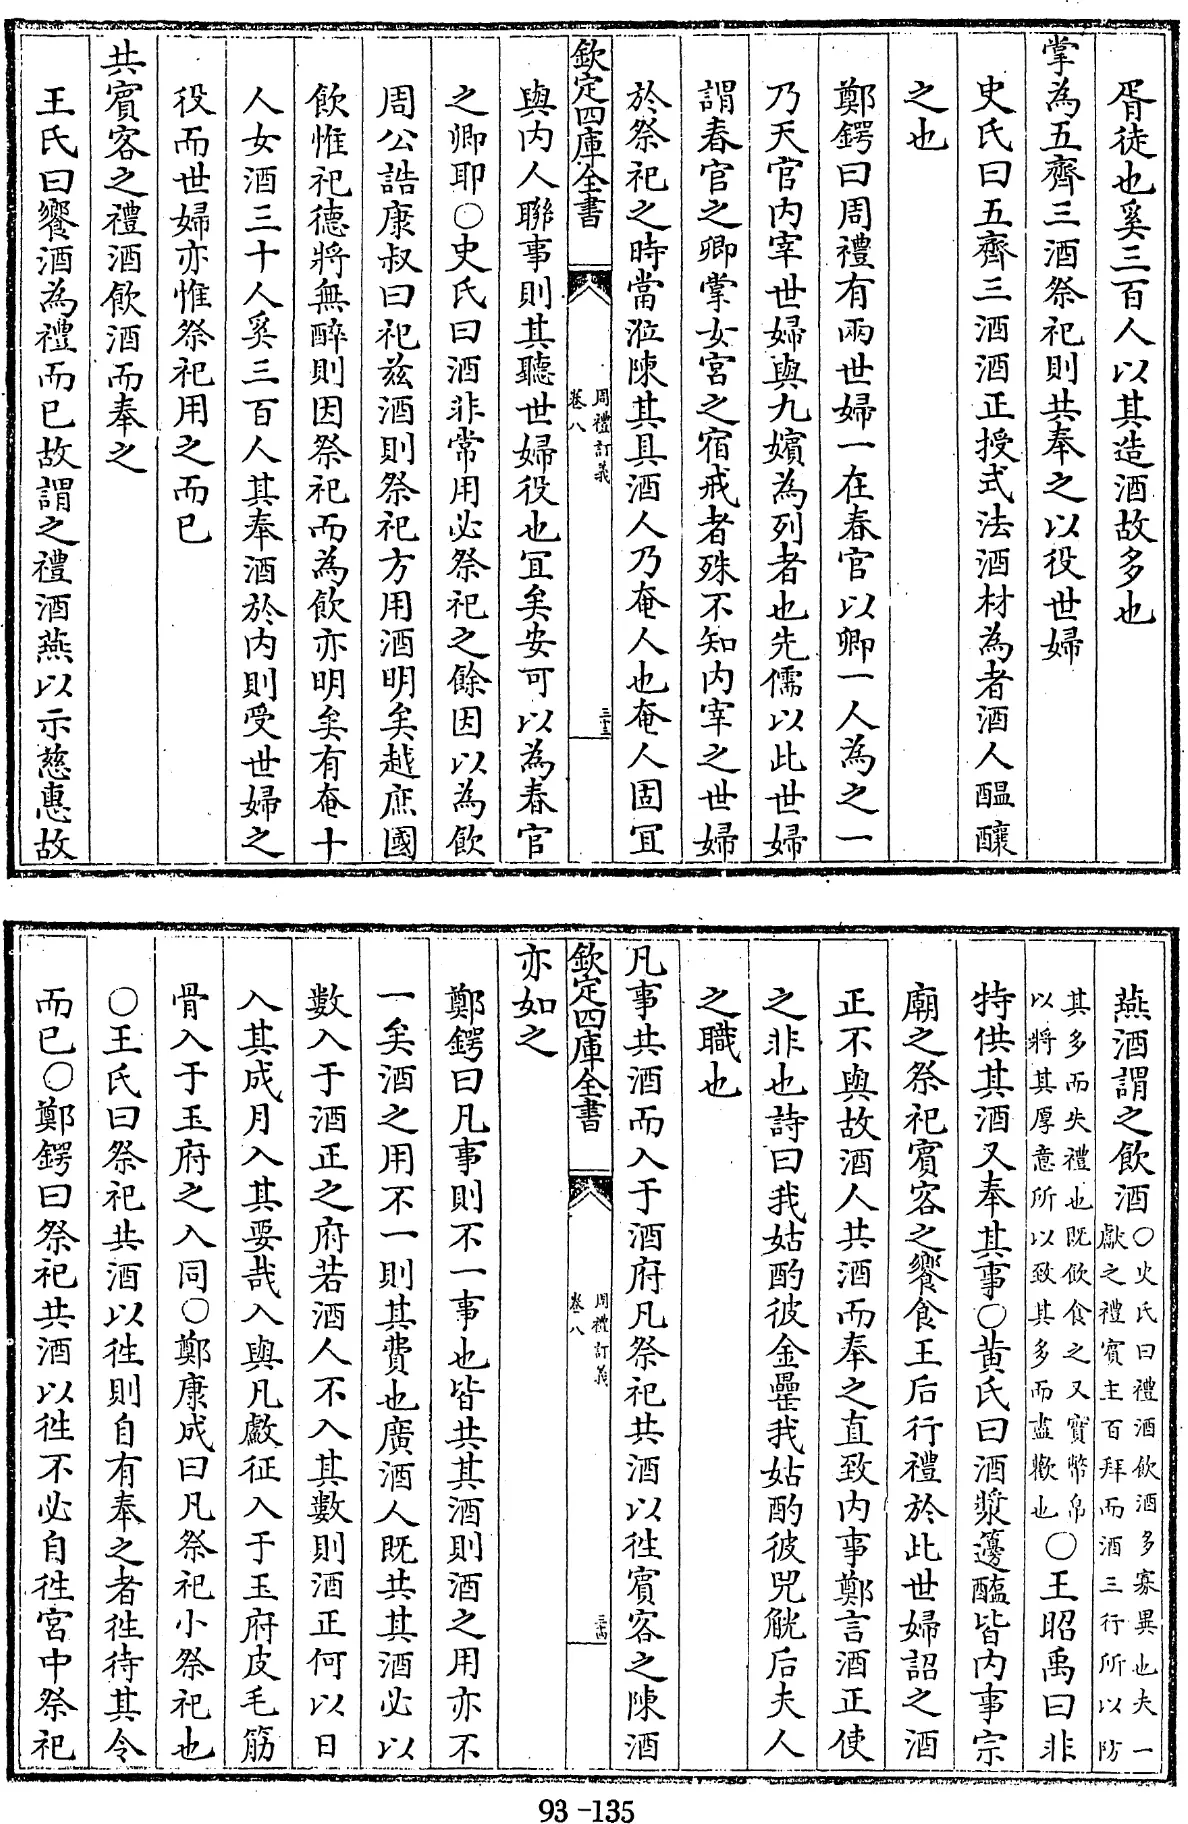 胥徒也奚三百人以其造酒故多也
掌為五齊三酒祭祀則共奉之以役世婦
史氏曰五齊三酒酒正授式法酒材為者酒人醖釀
之也
鄭鍔曰周禮有兩世婦一在春官以卿一人為之一
乃天官内宰世婦與九嬪為列者也先儒以此世婦
謂春官之卿掌女宮之宿戒者殊不知内宰之世婦
於祭祀之時當涖陳其具酒人乃奄人也奄人固冝
欽定四庫全書
周禮訂義
卷八
三十三
與内人聯事則其聽世婦役也冝矣安可以為春官
之卿耶○史氏曰酒非常用必祭祀之餘因以為飲
周公誥康叔曰祀兹酒則祭祀方用酒明矣越庶國
飲惟祀德將無醉則因祭祀而為飲亦明矣有奄十
人女酒三十人奚三百人其奉酒於内則受世婦之
役而世婦亦惟祭祀用之而已
共賓客之禮酒飲酒而奉之
王氏曰饗酒為禮而已故謂之禮酒燕以示慈惠故
燕酒謂之飲酒○史氏曰禮酒飲酒多寡異也夫一
獻之禮賓主百拜而酒三行所以防
其多而失禮也既飲食之又實幣帛
以將其厚意所以致其多而盡歡也○王昭禹曰非
特供其酒又奉其事○黄氏曰酒漿籩醢皆内事宗
廟之祭祀賓客之饗食王后行禮於此世婦詔之酒
正不與故酒人共酒而奉之直致内事鄭言酒正使
之非也詩曰我姑酌彼金罍我姑酌彼兕觥后夫人
之職也
凡事共酒而入于酒府凡祭祀共酒以徃賓客之陳酒
欽定四庫全書
周禮訂義
卷八
三十四
亦如之
鄭鍔曰凡事則不一事也皆共其酒則酒之用亦不
一矣酒之用不一則其費也廣酒人既共其酒必以
數入于酒正之府若酒人不入其數則酒正何以日
入其成月入其要哉入與凡獻征入于玉府皮毛筋
骨入于玉府之入同○鄭康成曰凡祭祀小祭祀也
○王氏曰祭祀共酒以徃則自有奉之者徃待其令
而已○鄭鍔曰祭祀共酒以徃不必自徃宮中祭祀
93-135